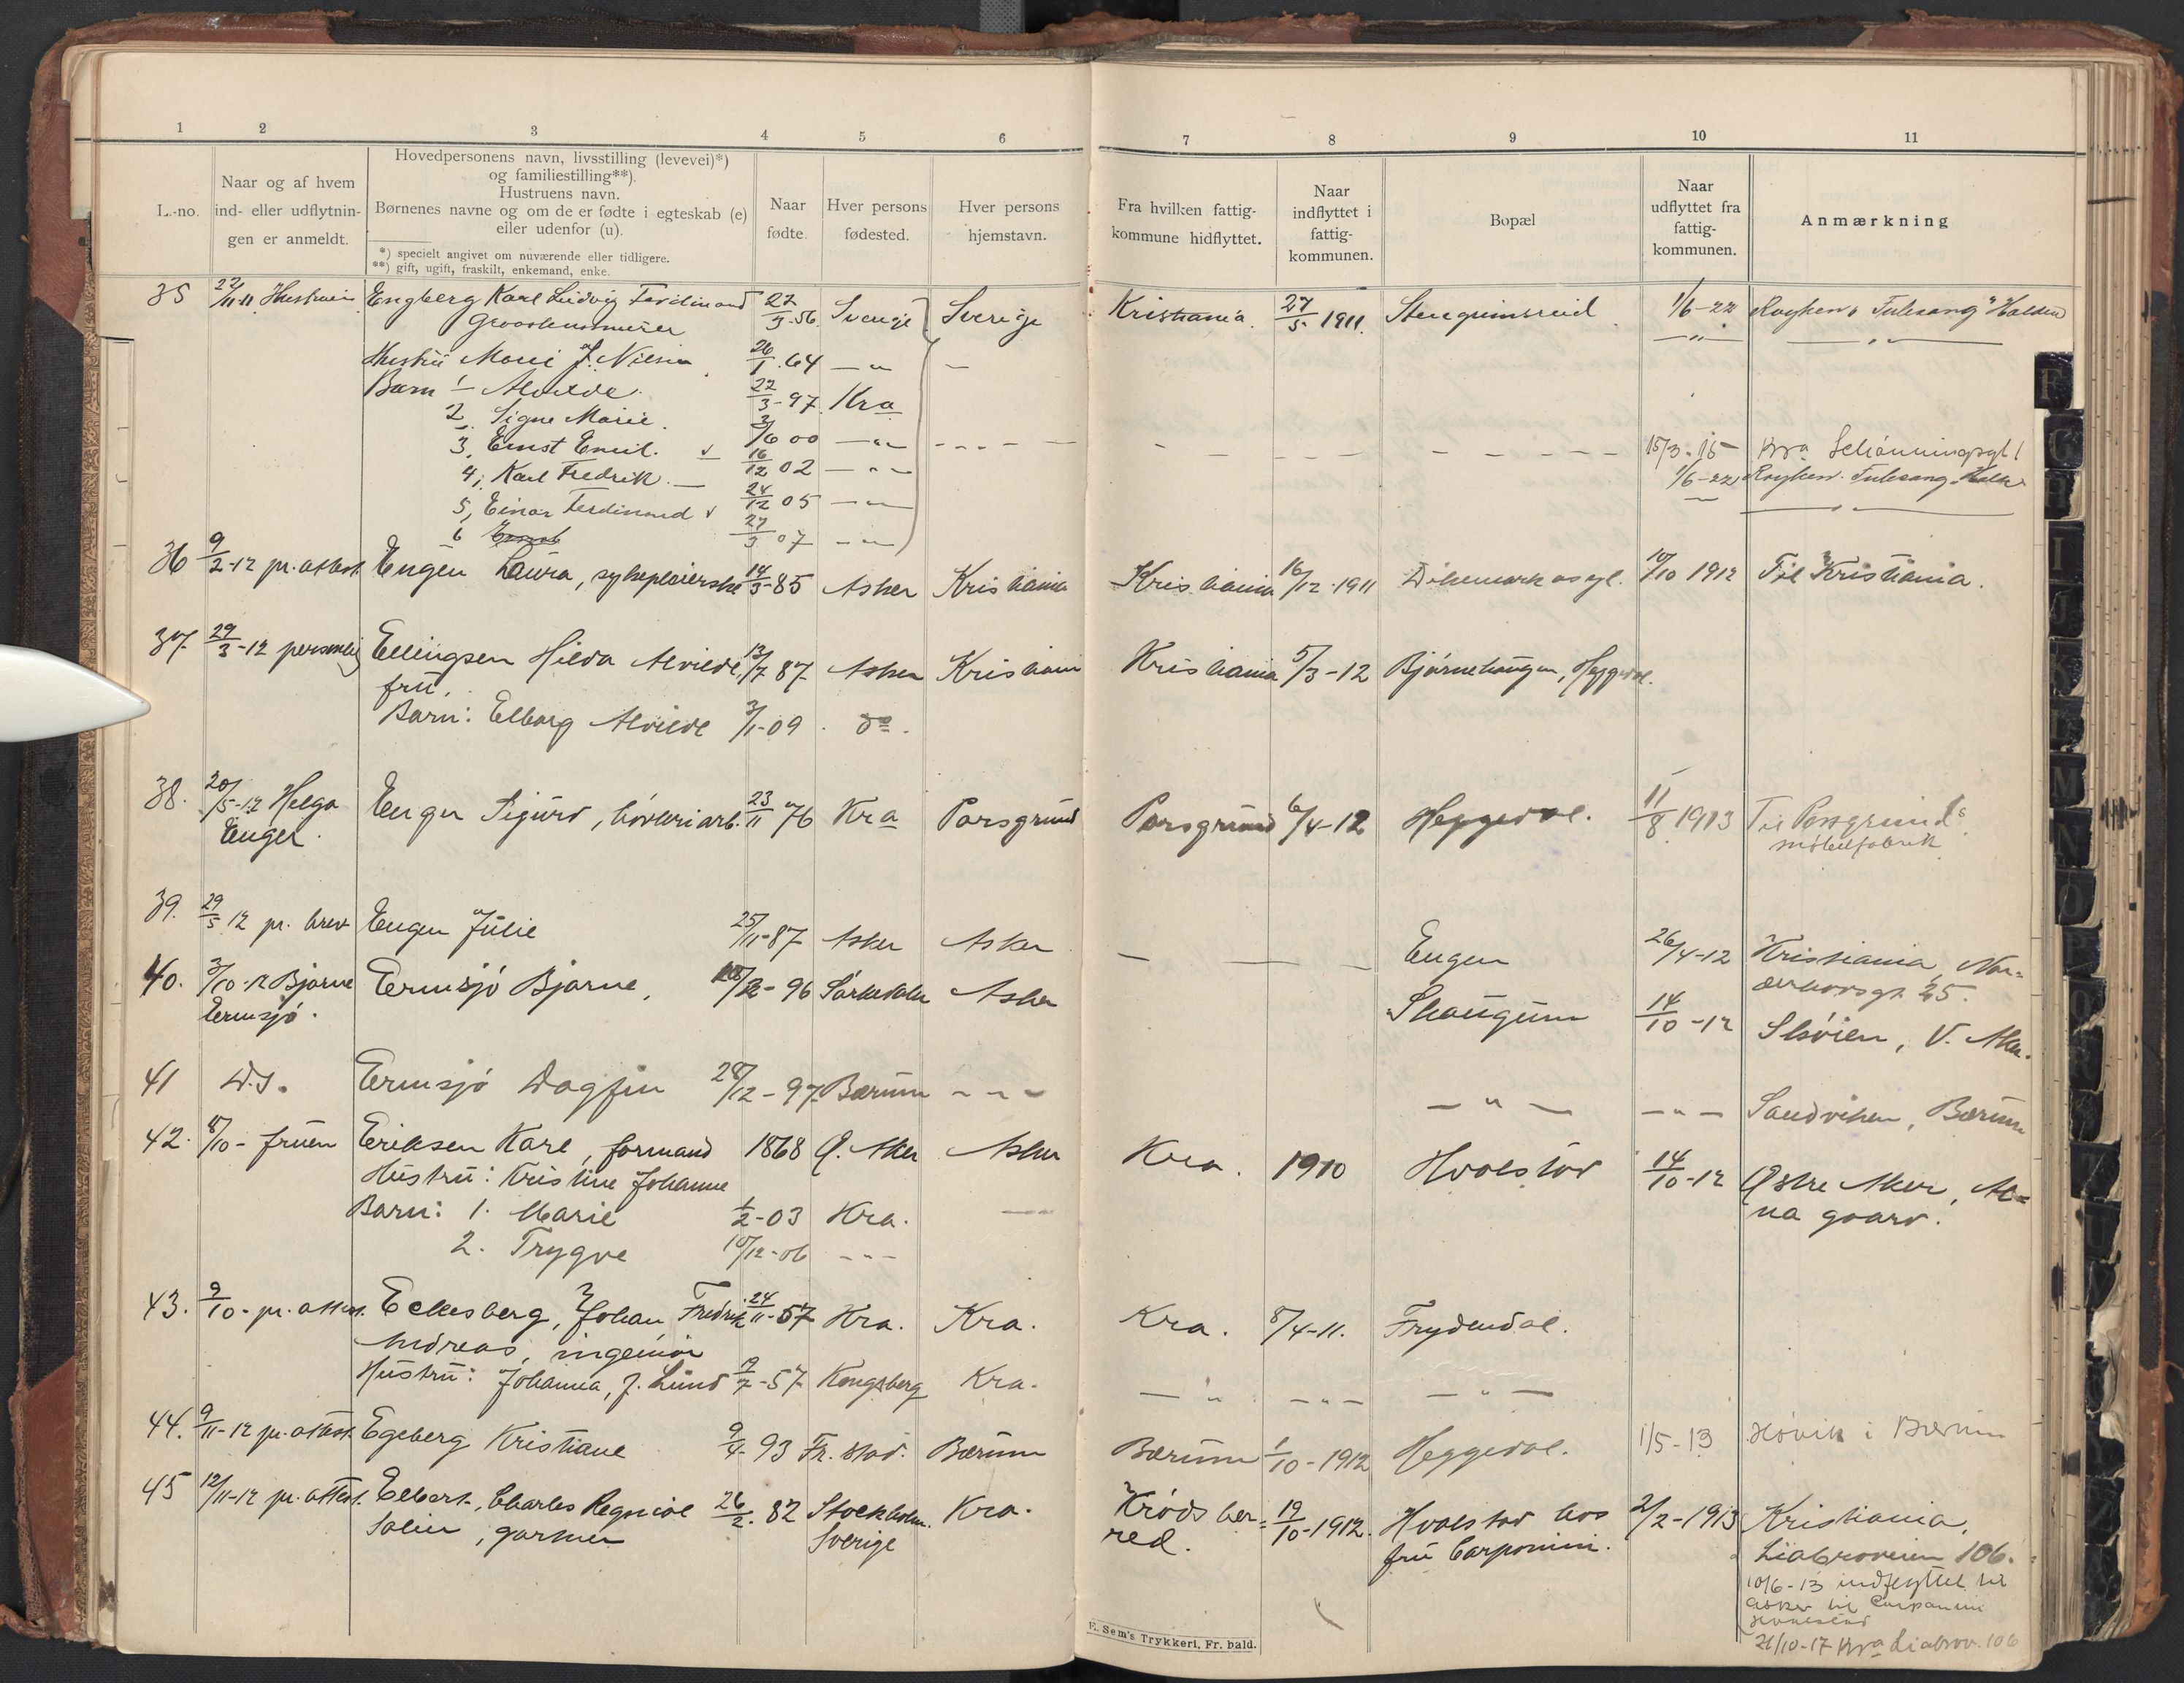 1 2 3 4 5 6 7 8 9 10 11
L.-no.
Naar og af hvem
ind- eller udflytnin-
gen er anmeldt.
Hovedpersonens navn, livsstilling (levevei)*)
og familiestilling**).
Hustruens navn.
Børnenes navne og om de er fødte i egteskab (e)
eller udenfor (u).
*) specielt angivet om nuværende eller tidligere.
**) gift, ugift, fraskilt, enkemand, enke.
Naar
fødte.
Hver persons
fødested.
Hver persons
hjemstavn.
Fra hvilken fattig-
kommune hidflyttet.
Naar
indflyttet i
fattig-
kommunen.
Bopæl
Naar
udflyttet fra
fattig-
kommunen.
Anmærkning
35 22/11-11 Hustruen Engberg Karl Ludvig Ferdinand 22/3-56 Sverige Sverige Kristiania 27/5-1911 Stengrimsreid 1/6-22 Røyken
Hustru Marie f. Nilsen 26/1-64 — " —
Barn 1 Alvilde 22/3-97 Kra
2. Signe Marie 3/6 00 — " —
3, Ernst Emil 16/12 02 — " — 15/3-15 Kra
4, Karl Fredrik 24/12 05 — " — 1/6-22 Røyken
5, Einar Ferdinand 27/3 07 — " —
6
36 9/2-12 pr. attest. Engen Laura, sykepleierske 14/3-85 Asker Kristiania Kristiania 16/12-1911 Dikemark asyl. 10/10 1912 Til Kristiania.
37. 29/3-12 personlig Ellingsen Hilda Alvilde, 13/7 87 Asker Kristiania Kristiania 5/3-12 Bjørnehaugen, Heggedal.
fru.
Barn: Elborg Alvilde 3/1-09 do.
38. 20/5-12 Helga Enger Sigurd, høvleriarb. 23/11 76 Kra Porsgrund Porsgrund 6/4-12 Heggedal. 11/8 1913 Til Porsgrunds
Enger. møbelfabrik
39. 29/5 12 pr. brev Engen Julie 25/11-87 Asker Asker — — — Engen 26/4-12 Kristiania, Nor=
derhovsgt. 25.
40. 3/10-12 Bjarne Ermsjø Bjarne, 96 Sørkedalen Asker Skaugum 14/10-12 Skøien, V. Aker.
Ermsjø.
41 D.S. Ermsjø Dagfin 28/12-97 Bærum - " - — " — — " — Sandviken, Bærum
42. 8/10- fruen Eriksen Karl, formand 1868 Ø. Aker Asker Kra. 1910 Hvalstad 14/10-12 Østre Aker, Al=
na gaard.
Hustru: Kristine Johanne
Barn: 1. Marie 1/2-03 Kra.
2. Trygve 10/12-06 - " -
43. 9/10- pr. attest. Eckesberg, Johan Fredrik 24/11-57 Kra. Kra. Kra. 8/4-11. Frydendal.
Andreas, ingeniør
Hustru: Johanna, f. Lund 12/7-57 Kongsberg Kra. — " — - " - — " —
44. 9/11-12 pr. attest Egeberg Kristiane 9/4-93 Fr.stad. Bærum Bærum 1/10-1912 Heggedal. 1/5-13 Høvik i Bærum
45 12/11-12 pr. attest. Elbert, Charles 26/2-82 Stockholm. Kra. Krødsher= 19/10-1912. Hvalstad hos 2/2-1913 Kristiania,
Salin, gartner Sverige red. fru Carponini. Liabroveien 106.
10/6-13 indflyttet til
Asker til Carponini
Hvalstad
21/10-17 Kra Liabrov. 106
E. Sem's Trykkeri, Fr. hald.
F G H I J K L M N O P Q R S